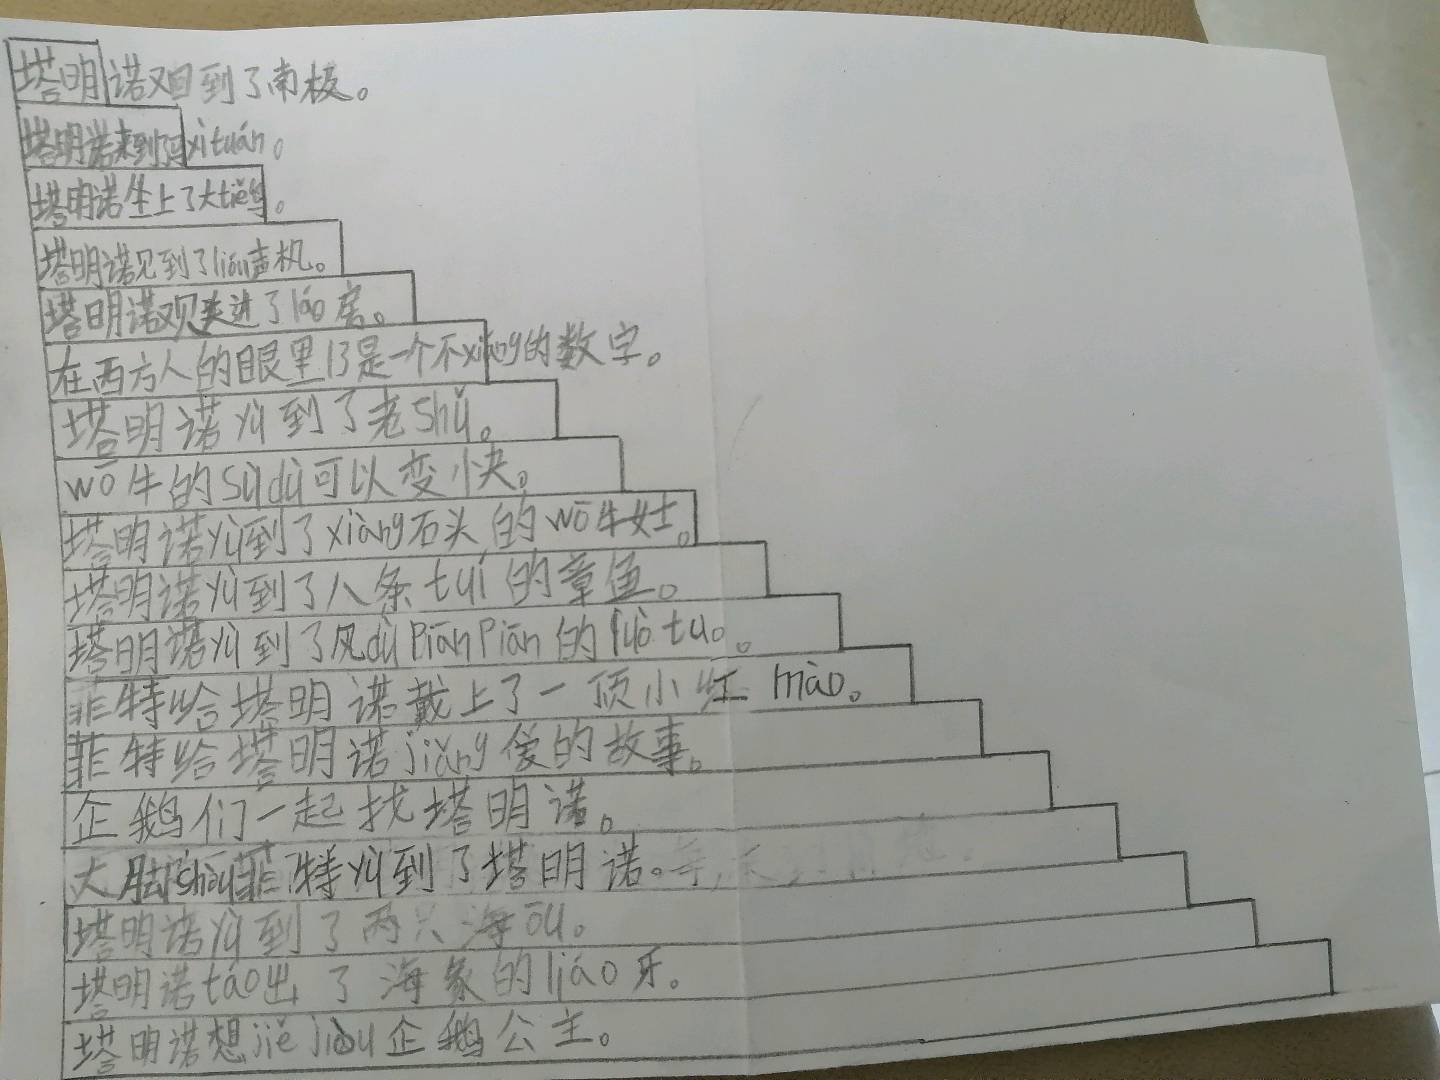 塔明诺又回到了南极。
塔明诺来到阿xìtuán。
塔明诺坐上了大tiě鸟。
塔明诺见到了liú声机。
塔明诺观进了láo房。
在西方人的眼里13是一个不xiáng的数字。
塔明诺yù到了老shǔ。
wō牛的sùdù可以变快。
塔明诺yù到了xiàng石头的wō牛女士。
塔明诺yù到了八条tuǐ的章鱼。
塔明诺yù到了风dù piān piān的luò tuo。
菲特给塔明诺戴上了一顶小红mào。
菲特给塔明诺jiǎng爱的故事。
企鹅们一起找塔明诺。
大脚shòu菲特yù到了塔明诺。
塔明诺yù到了两只海ōu。
塔明诺táo出了海象的liáo牙。
塔明诺想jiě jiù企鹅公主。